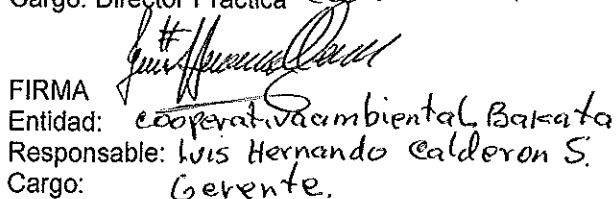 Cargo: Director Práctica
FIRMA
Entidad: cooperativa ambiental Bakata
Responsable: Luis Hernando Calderon S.
Cargo: Gerente.